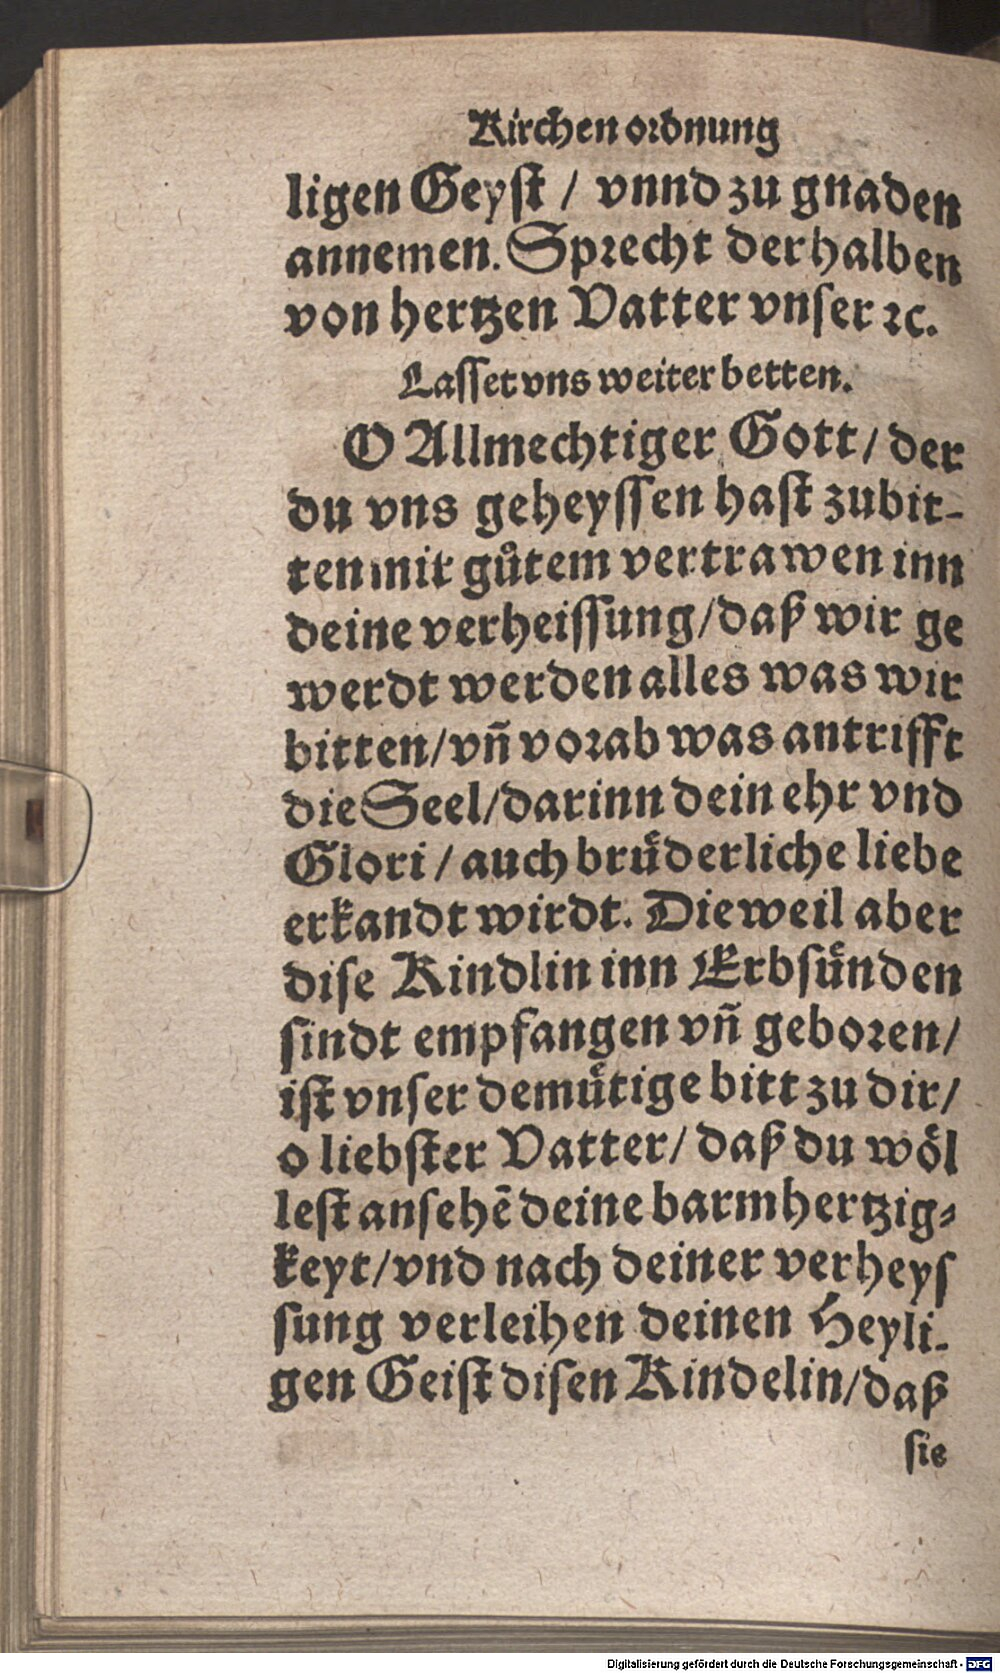 Kirchen ordnung
ligen Geyst / vnnd zu gnaden
annemen. Sprecht derhalben
von hertzen Vatter vnser ꝛc.
Lasset vns weiter betten.
O Allmechtiger Gott / der
du vns geheyssen hast zubit-
ten mit gůtem vertrawen inn
deine verheissung / daß wir ge
werdt werden alles was wir
bitten / vñ vorab was antrifft
die Seel / darinn dein ehr vnd
Glori / auch bruͤderliche liebe
erkandt wirdt. Dieweil aber
dise Kindlin inn Erbsuͤnden
sindt empfangen vñ geboren /
ist vnser demuͤtige bitt zu dir /
o liebster Vatter / daß du woͤl
lest ansehẽ deine barmhertzig-
keyt / vnd nach deiner verheys
sung verleihen deinen Heyli-
gen Geist disen Kindelin / daß
sie
Digitalisierung gefördert durch die Deutsche Forschungsgemeinschaft - DFG